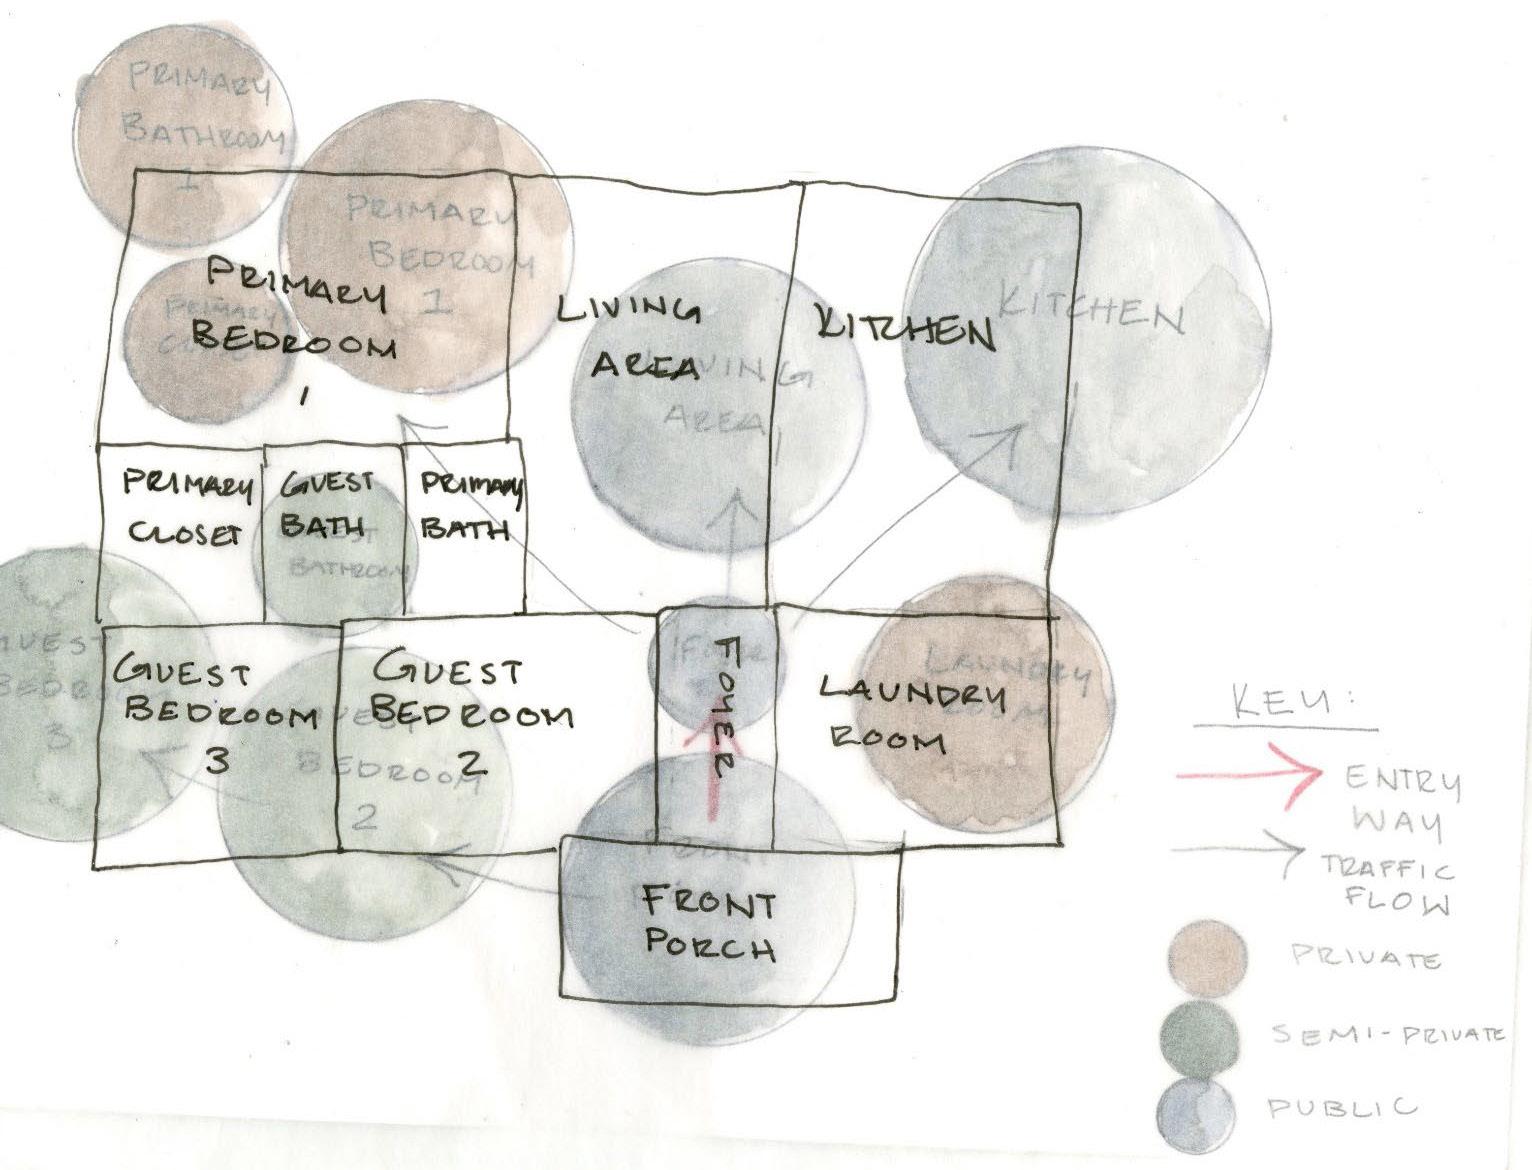 PRIMARY
BATHROOM
1
PRIMARY
BEDROOM
1
PRIMARY
PRIMARY
BEDROOM
1
LIVING
AREA
LIVING
AREA
KITCHEN
KITCHEN
PRIMARY
CLOSET
GUEST
BATH
BATHROOM
PRIMARY
BATH
GUEST
BEDROOM
3
GUEST
BEDROOM
3
GUEST
BEDROOM
2
BEDROOM
2
FOYER
FOYER
LAUNDRY
ROOM
LAUNDRY
ROOM
FRONT
FRONT
PORCH
KEY:
ENTRY
WAY
TRAFFIC
FLOW
PRIVATE
SEMI-PRIVATE
PUBLIC